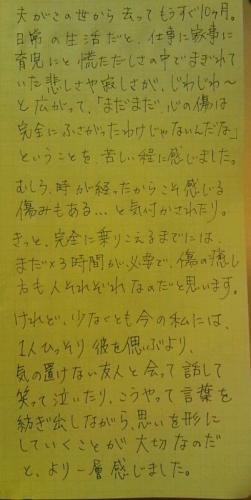 夫がこの世から去ってもうすぐ10ヶ月。
日常の生活だと、仕事に家事に
育児にと慌ただしさの中でまぎれて
いた悲しさや寂しさが、じわじわ〜
と広がって、「まだまだ、心の傷は
完全にふさがったわけじゃないんだな」
ということを、苦しい程に感じました。
むしろ、時が経ったからこそ感じる
傷みもある…と気付かされたり。
きっと、完全に乗りこえるまでには、
まだ×3時間が必要で、傷の癒し
方も人それぞれなのだと思います。
けれど、少なくとも今の私には、
1人ひっそり彼を偲ぶより、
気の置けない友人と会って話して
笑って泣いたり、こうやって言葉を
紡ぎ出しながら、思いを形に
していくことが大切なのだ
と、より一層感じました。